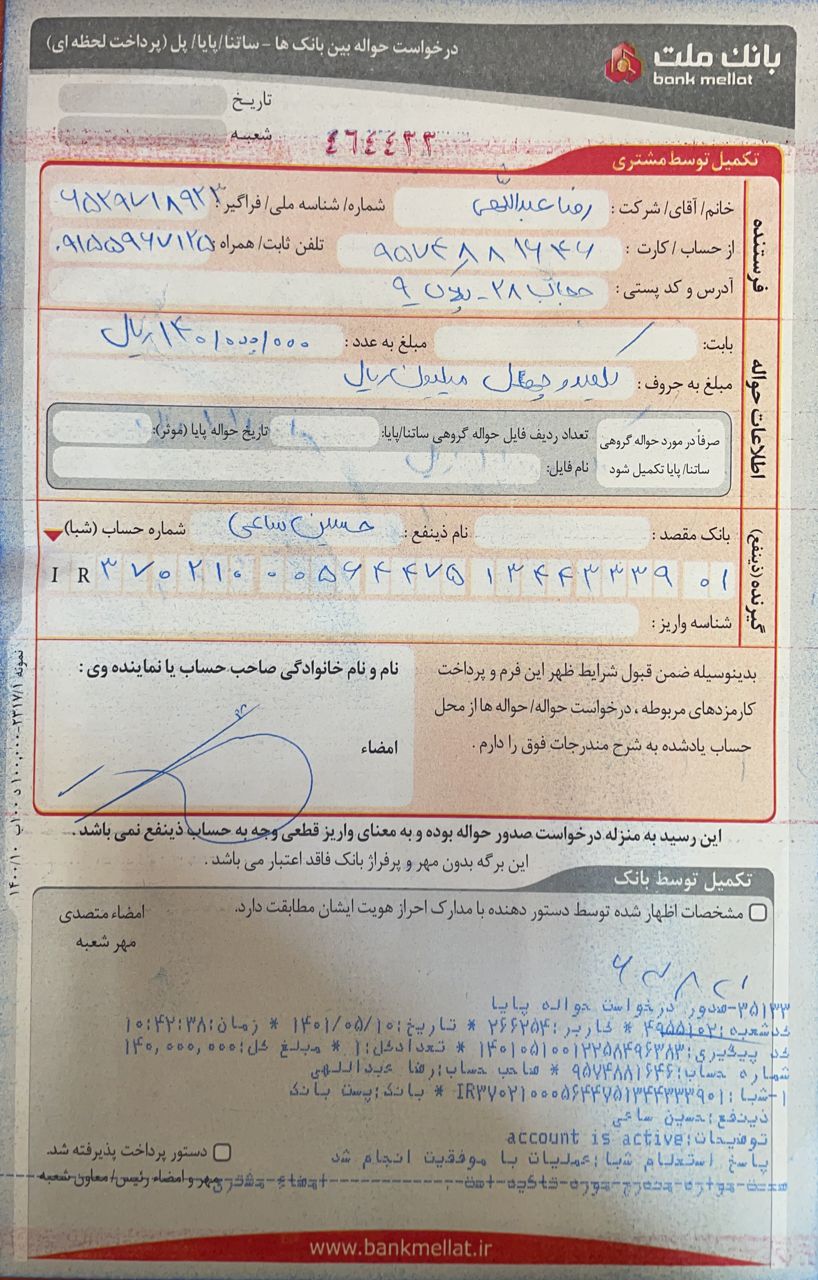 بانک ملت
bank mellat
درخواست حواله بین بانک ها - ساتنا/پایا/ پل (پرداخت لحظه ای)
تاریخ
شعبه
٤٦٤٤٣٣
تکمیل توسط مشتری
فرستنده
خانم/ آقای/ شرکت : رضا عبداللهی شماره/ شناسه ملی/ فراگیر : ۶۵۲۹۷۱۸۹۲۳
از حساب / کارت : ۹۵۷۴۸۸۱۶۴۶ تلفن ثابت/ همراه : ۰۹۱۵۵۹۶۷۱۲۵
آدرس و کد پستی : حجاب ۲۸ - پلاک ۹
اطلاعات حواله
بابت: مبلغ به عدد : ۱۴۰/۰۰۰/۰۰۰ ریال
مبلغ به حروف : یکصد و چهل میلیون ریال
صرفاً در مورد حواله گروهی ساتنا/ پایا تکمیل شود
تعداد ردیف فایل حواله گروهی ساتنا/پایا: تاریخ حواله پایا (موثر):
نام فایل:
گیرنده (ذینفع)
بانک مقصد : نام ذینفع : حسین ساعی شماره حساب (شبا)
IR ۳۷۰۲۱۰۰۰۵۶۴۴۷۵۱۳۴۴۳۳۳۹۰۱
شناسه واریز :
بدینوسیله ضمن قبول شرایط ظهر این فرم و پرداخت
کارمزدهای مربوطه ، درخواست حواله/ حواله ها از محل
حساب یادشده به شرح مندرجات فوق را دارم .
نام و نام خانوادگی صاحب حساب یا نماینده وی :
امضاء
این رسید به منزله درخواست صدور حواله بوده و به معنای واریز قطعی وجه به حساب ذینفع نمی باشد .
این برگه بدون مهر و پرفراژ بانک فاقد اعتبار می باشد .
تکمیل توسط بانک
مشخصات اظهار شده توسط دستور دهنده با مدارک احراز هویت ایشان مطابقت دارد.
امضاء متصدی
مهر شعبه
۳۵۱۳۳-صدور درخواست حواله پایا
کدشعبه:۴۹۵۵۱۰۲ * کاربر:۲۶۶۲۵۴ * تاریخ:۱۴۰۱/۰۵/۱۰ * زمان:۱۰:۴۲:۳۸
کد پیگیری:۱۴۰۱۰۵۱۰۰۱۲۲۵۸۴۹۶۳۸۳ * تعدادکل:۱ * مبلغ کل:۱۴۰,۰۰۰,۰۰۰
شماره حساب:۹۵۷۴۸۸۱۶۴۶ * صاحب حساب:رضا عبداللهی
۱-شبا:IR۳۷۰۲۱۰۰۰۵۶۴۴۷۵۱۳۴۴۳۳۳۹۰۱ * بانک:پست بانک
ذینفع:حسین ساعی
توضیحات:account is active
پاسخ استعلام شبا:عملیات با موفقیت انجام شد
دستور پرداخت پذیرفته شد.
مهر و امضاء رئیس/ معاون شعبه
www.bankmellat.ir